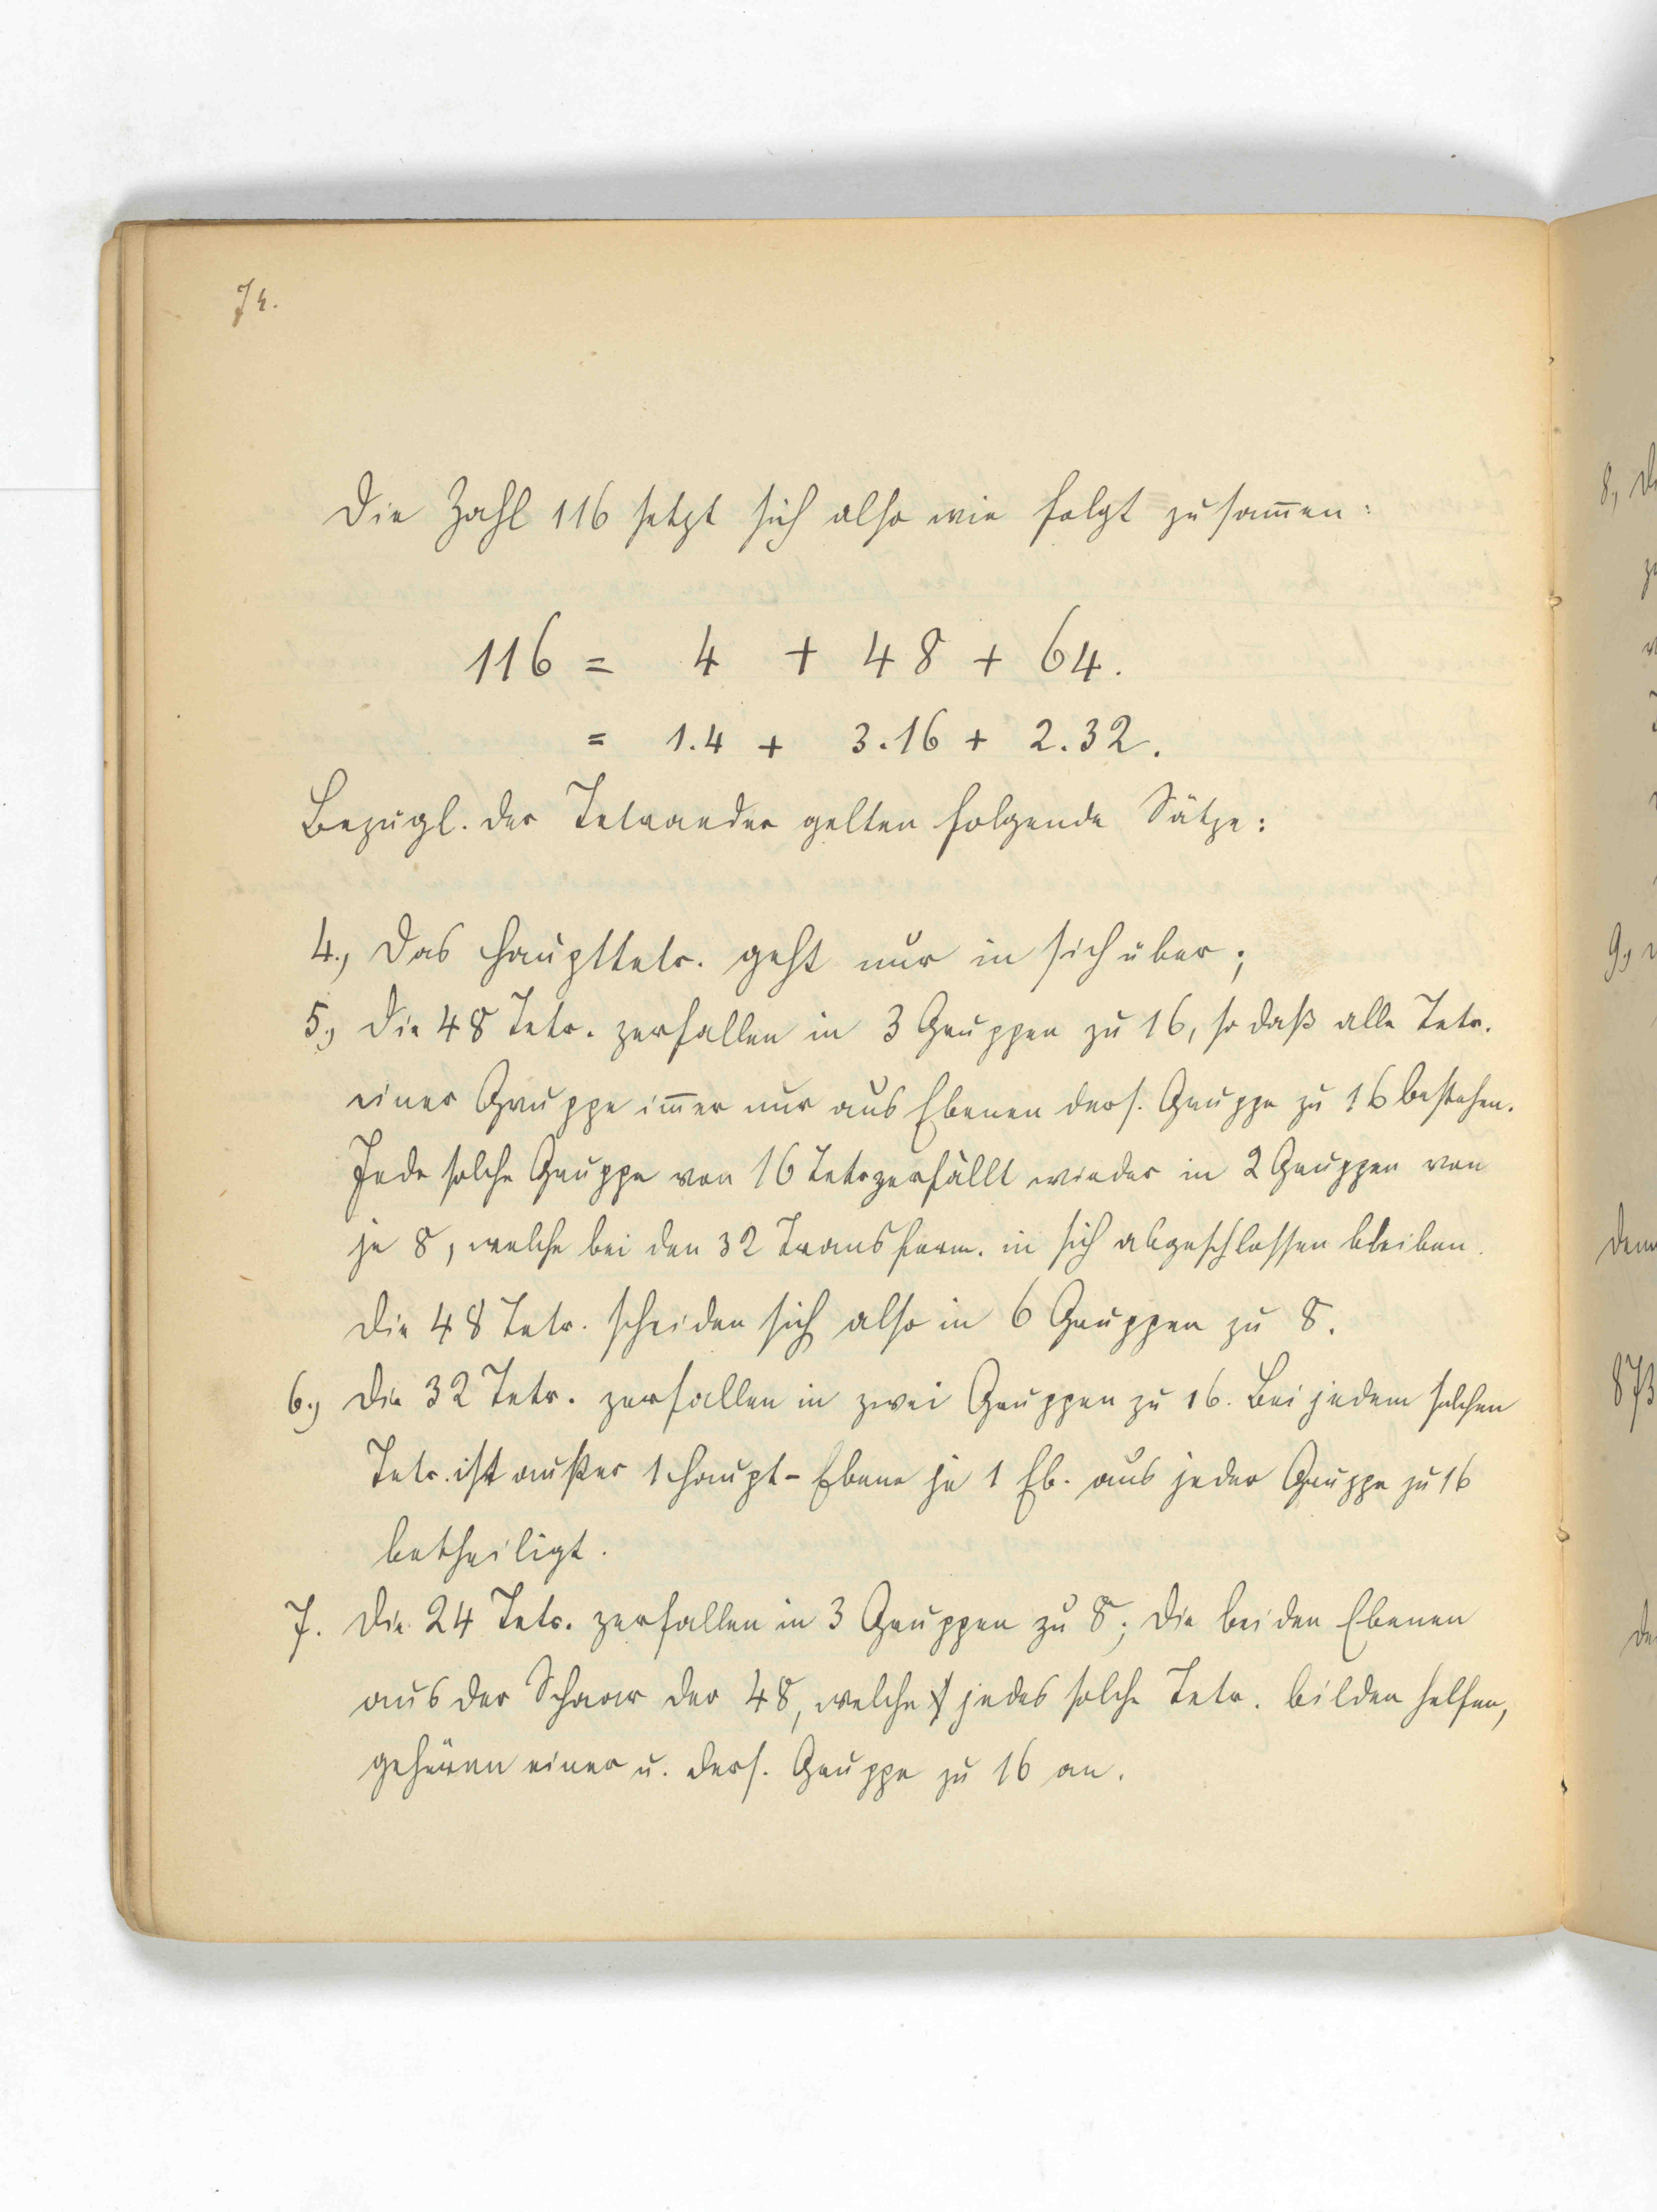 74.
Die Zahl 116 setzt sich also wie folgt zusam̅en:
116 = 4 + 48 + 64.
= 1.4 + 3.16 + 2.32.
Bezugl. der Tetraeder gelten folgende Sätze:
4., Das Haupttetr. geht nur in sich über;
5., Die 48 Tetr. zerfallen in 3 Gruppen zu 16, so daß alle Tetr.
einer Gruppe im̅er nur aus Ebenen ders. Gruppe zu 16 bestehen.
Jede solche Gruppe von 16 Tetr zerfällt wieder in 2 Gruppen von
je 8, welche bei den 32 Transform. in sich abgeschlossen bleiben.
Die 48 Tetr. scheiden sich also in 6 Gruppen zu 8.
6., Die 32 Tetr. zerfallen in zwei Gruppen zu 16. Bei jedem solchen
Tetr. ist außer 1 Haupt-Ebene je 1 Eb. aus jeder Gruppe zu 16
betheiligt.
7. Die 24 Tetr. zerfallen in 3 Gruppen zu 8; die beiden Ebenen
aus der Schaar der 48, welche jedes solche Tetr. bilden helfen,
gehören einer u. ders. Gruppe zu 16 an.
8,
9,
873